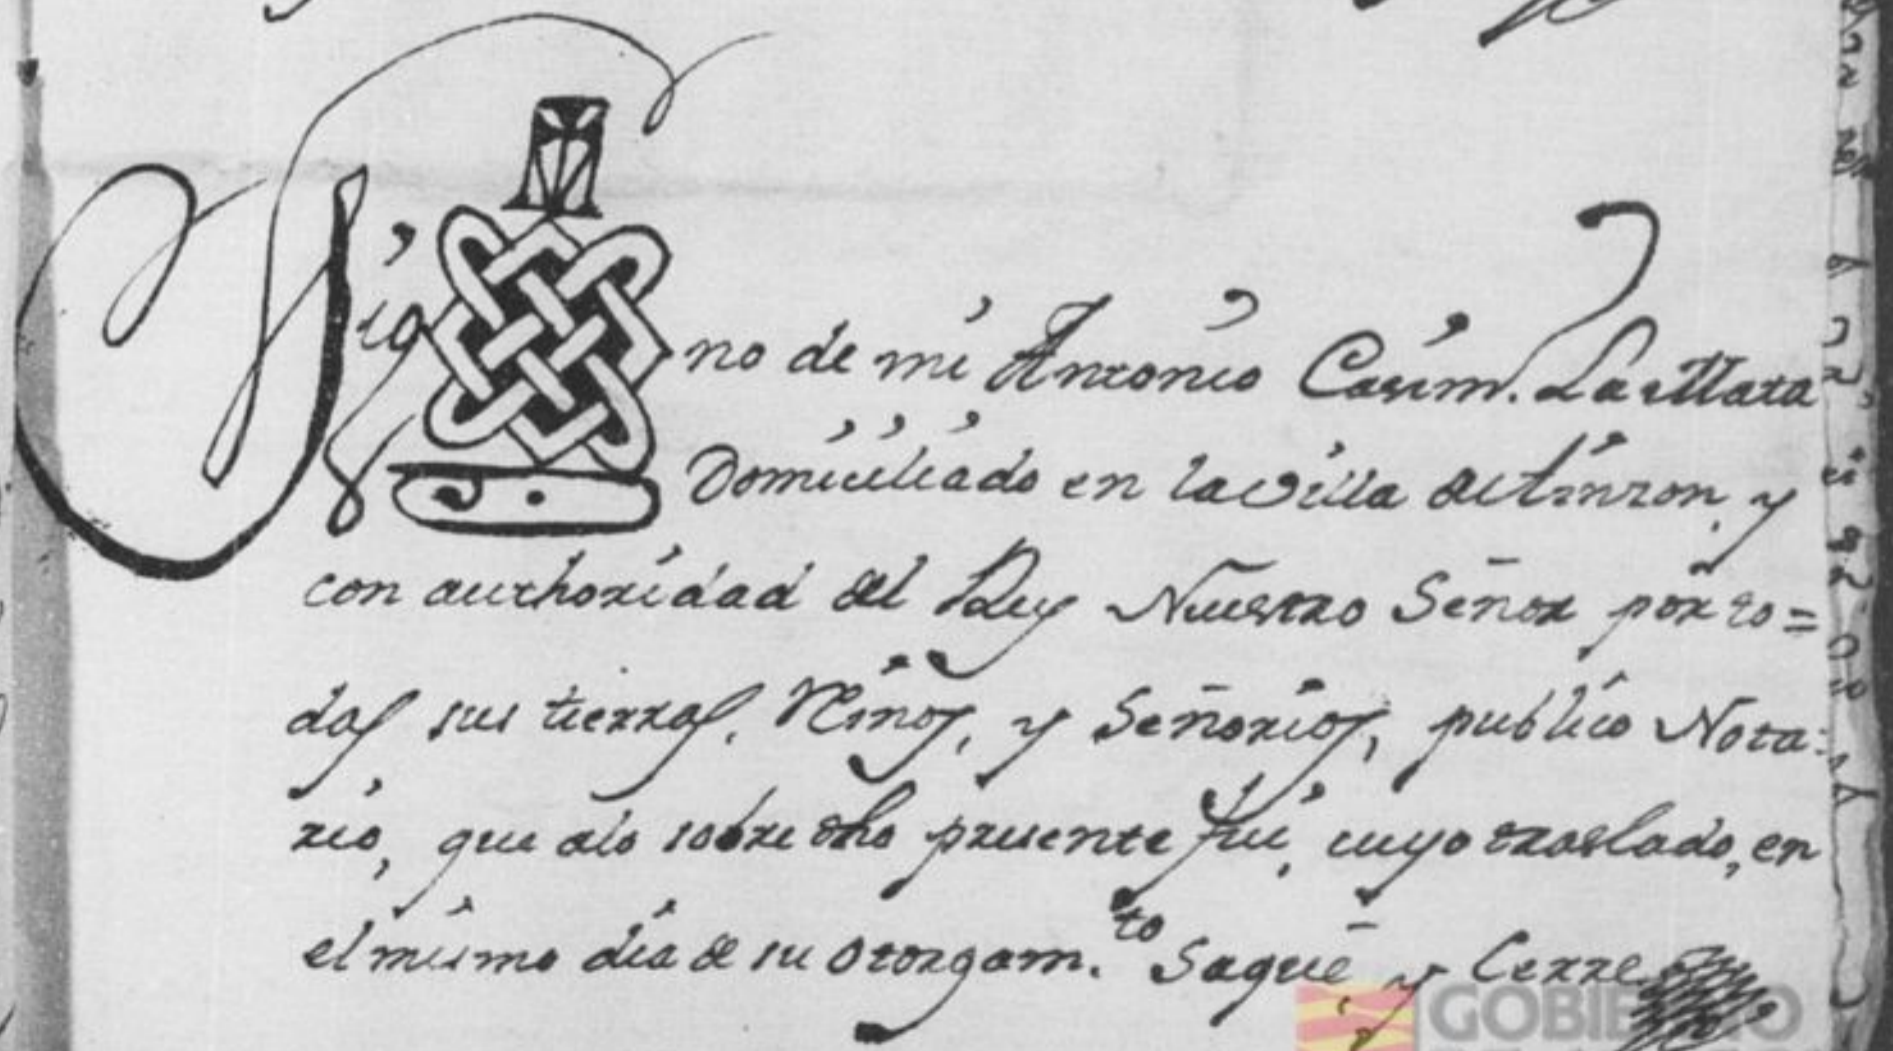 Sig no de mi Antonio Casim. La Mata
Domiciliado en la Villa de Ainzon, y
con authoridad del Rey Nuestro Señor por to=
das sus tierras, Reinos, y Señorios, publico Nota=
rio, que alo sobre dho presente fui, cuyo traslado, en
el mismo dia de su otorgam.to Saque, y Cerre
GOBIERNO